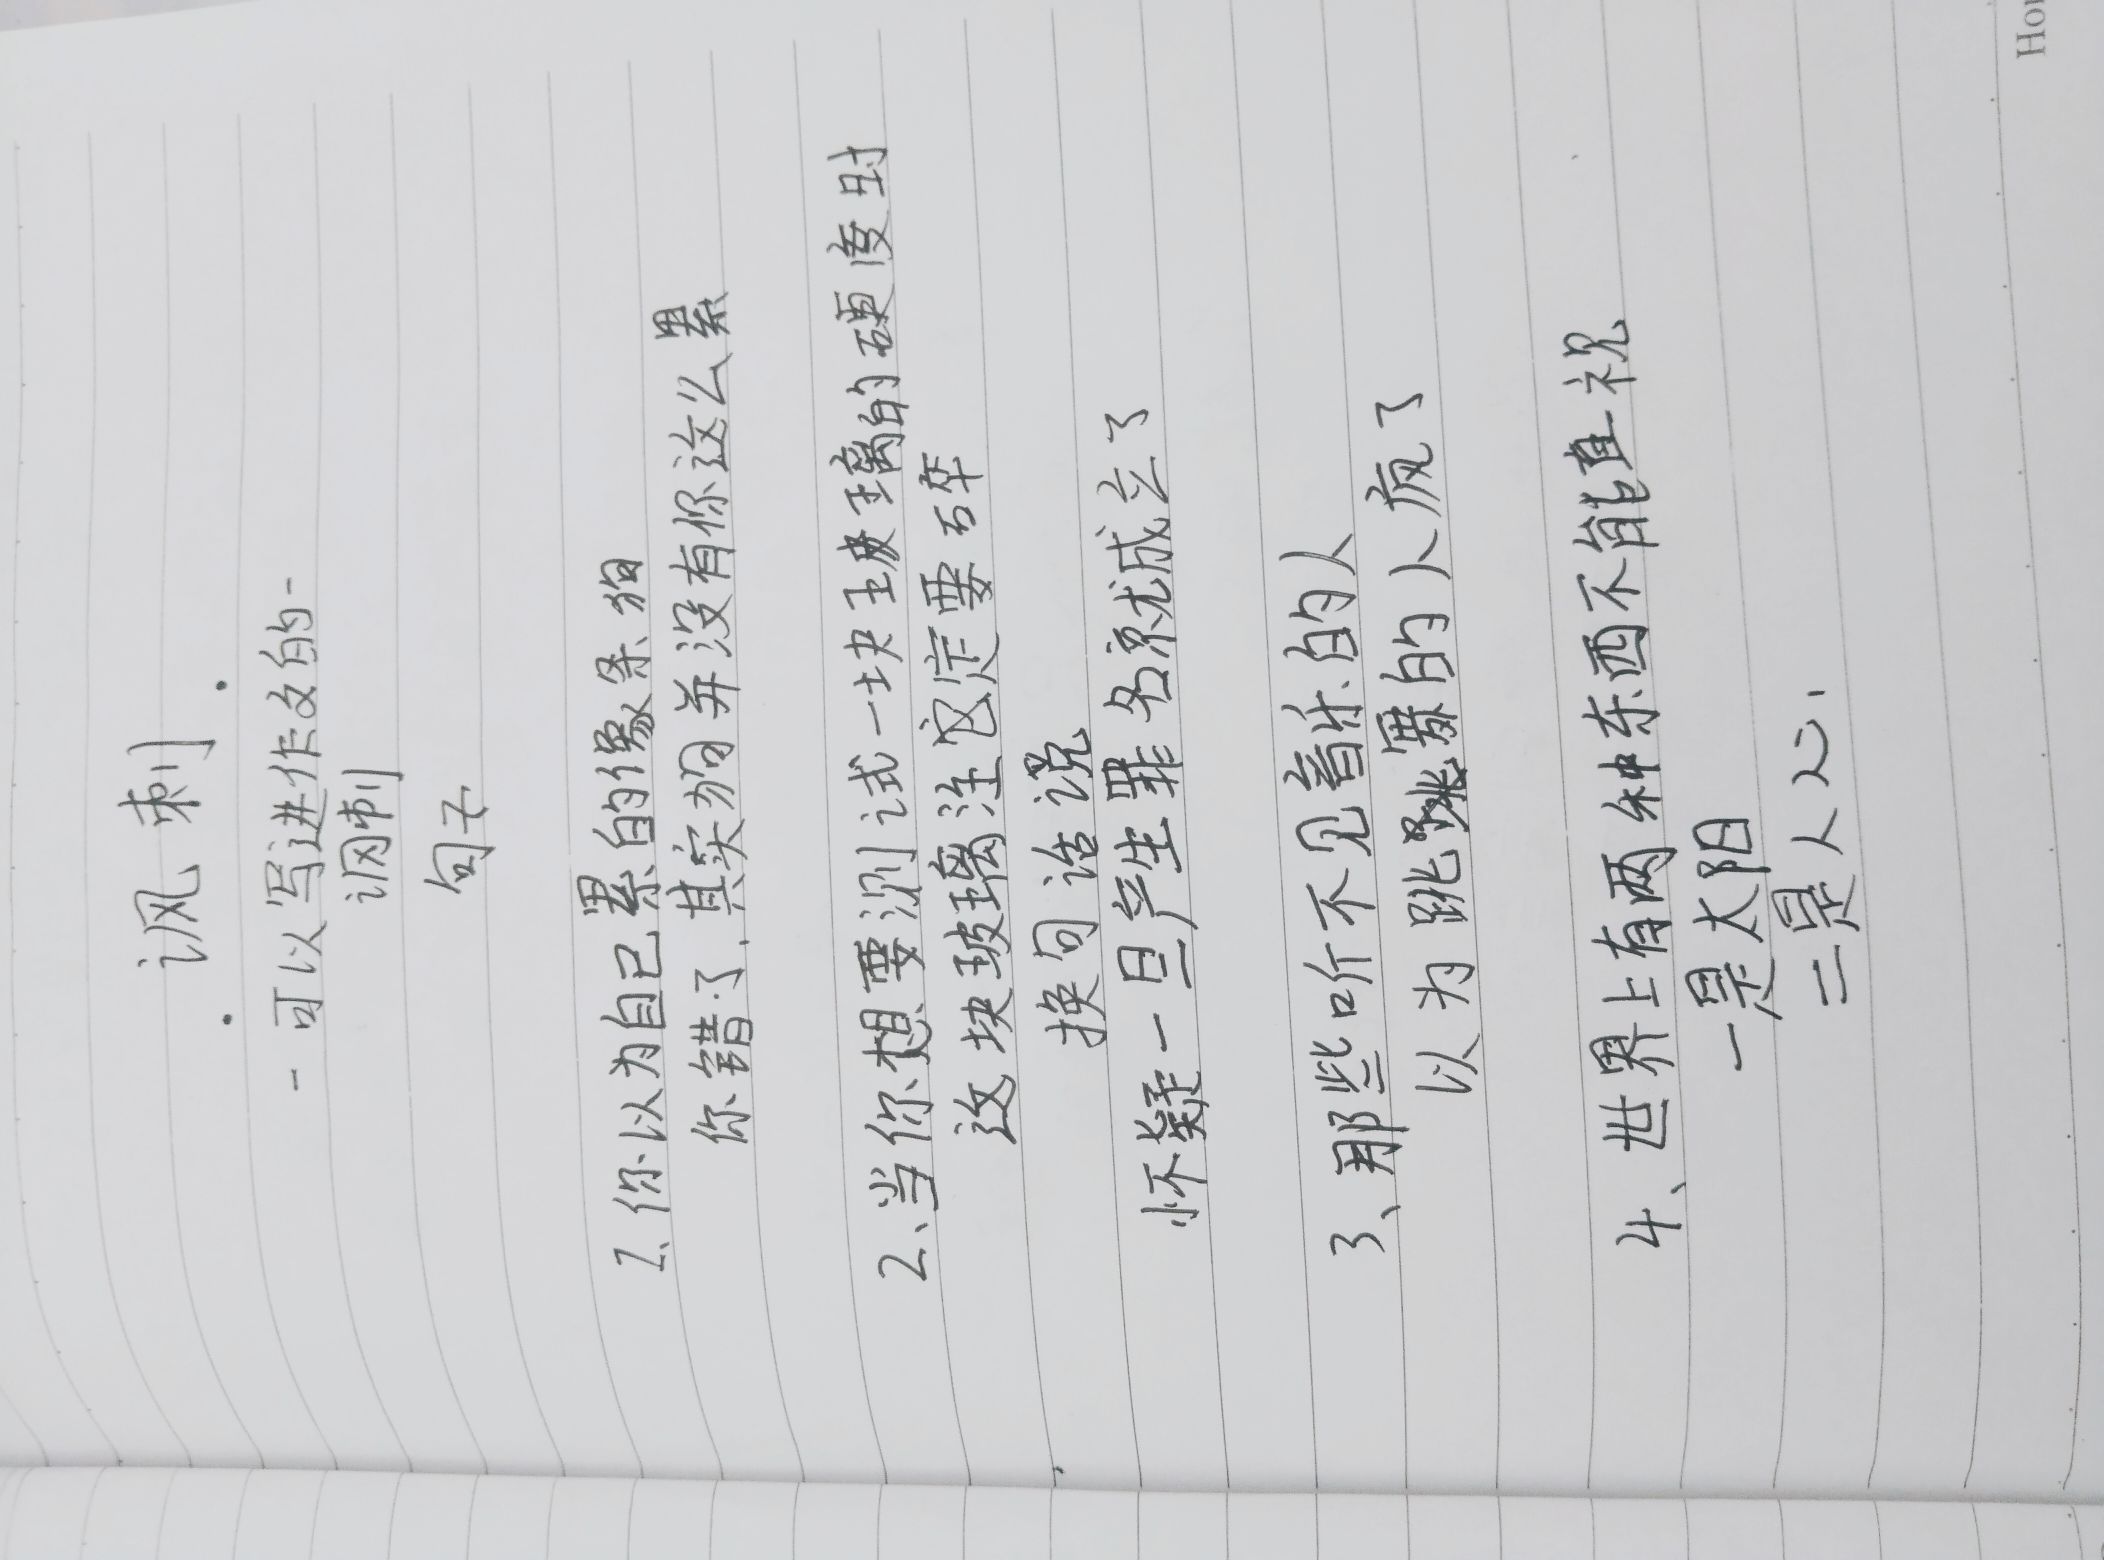 讽刺
-可以写进作文的-
讽刺
句子
1、你以为自己累的像条狗
你错了，其实狗并没有你这么累
2、当你想要测试一块玻璃的硬度时
这块玻璃注定要碎
换句话说
怀疑一旦产生罪名就成立了
3、那些听不见音乐的人
以为跳舞的人疯了
4、世界上有两种东西不能直视
一是太阳
二是人心.